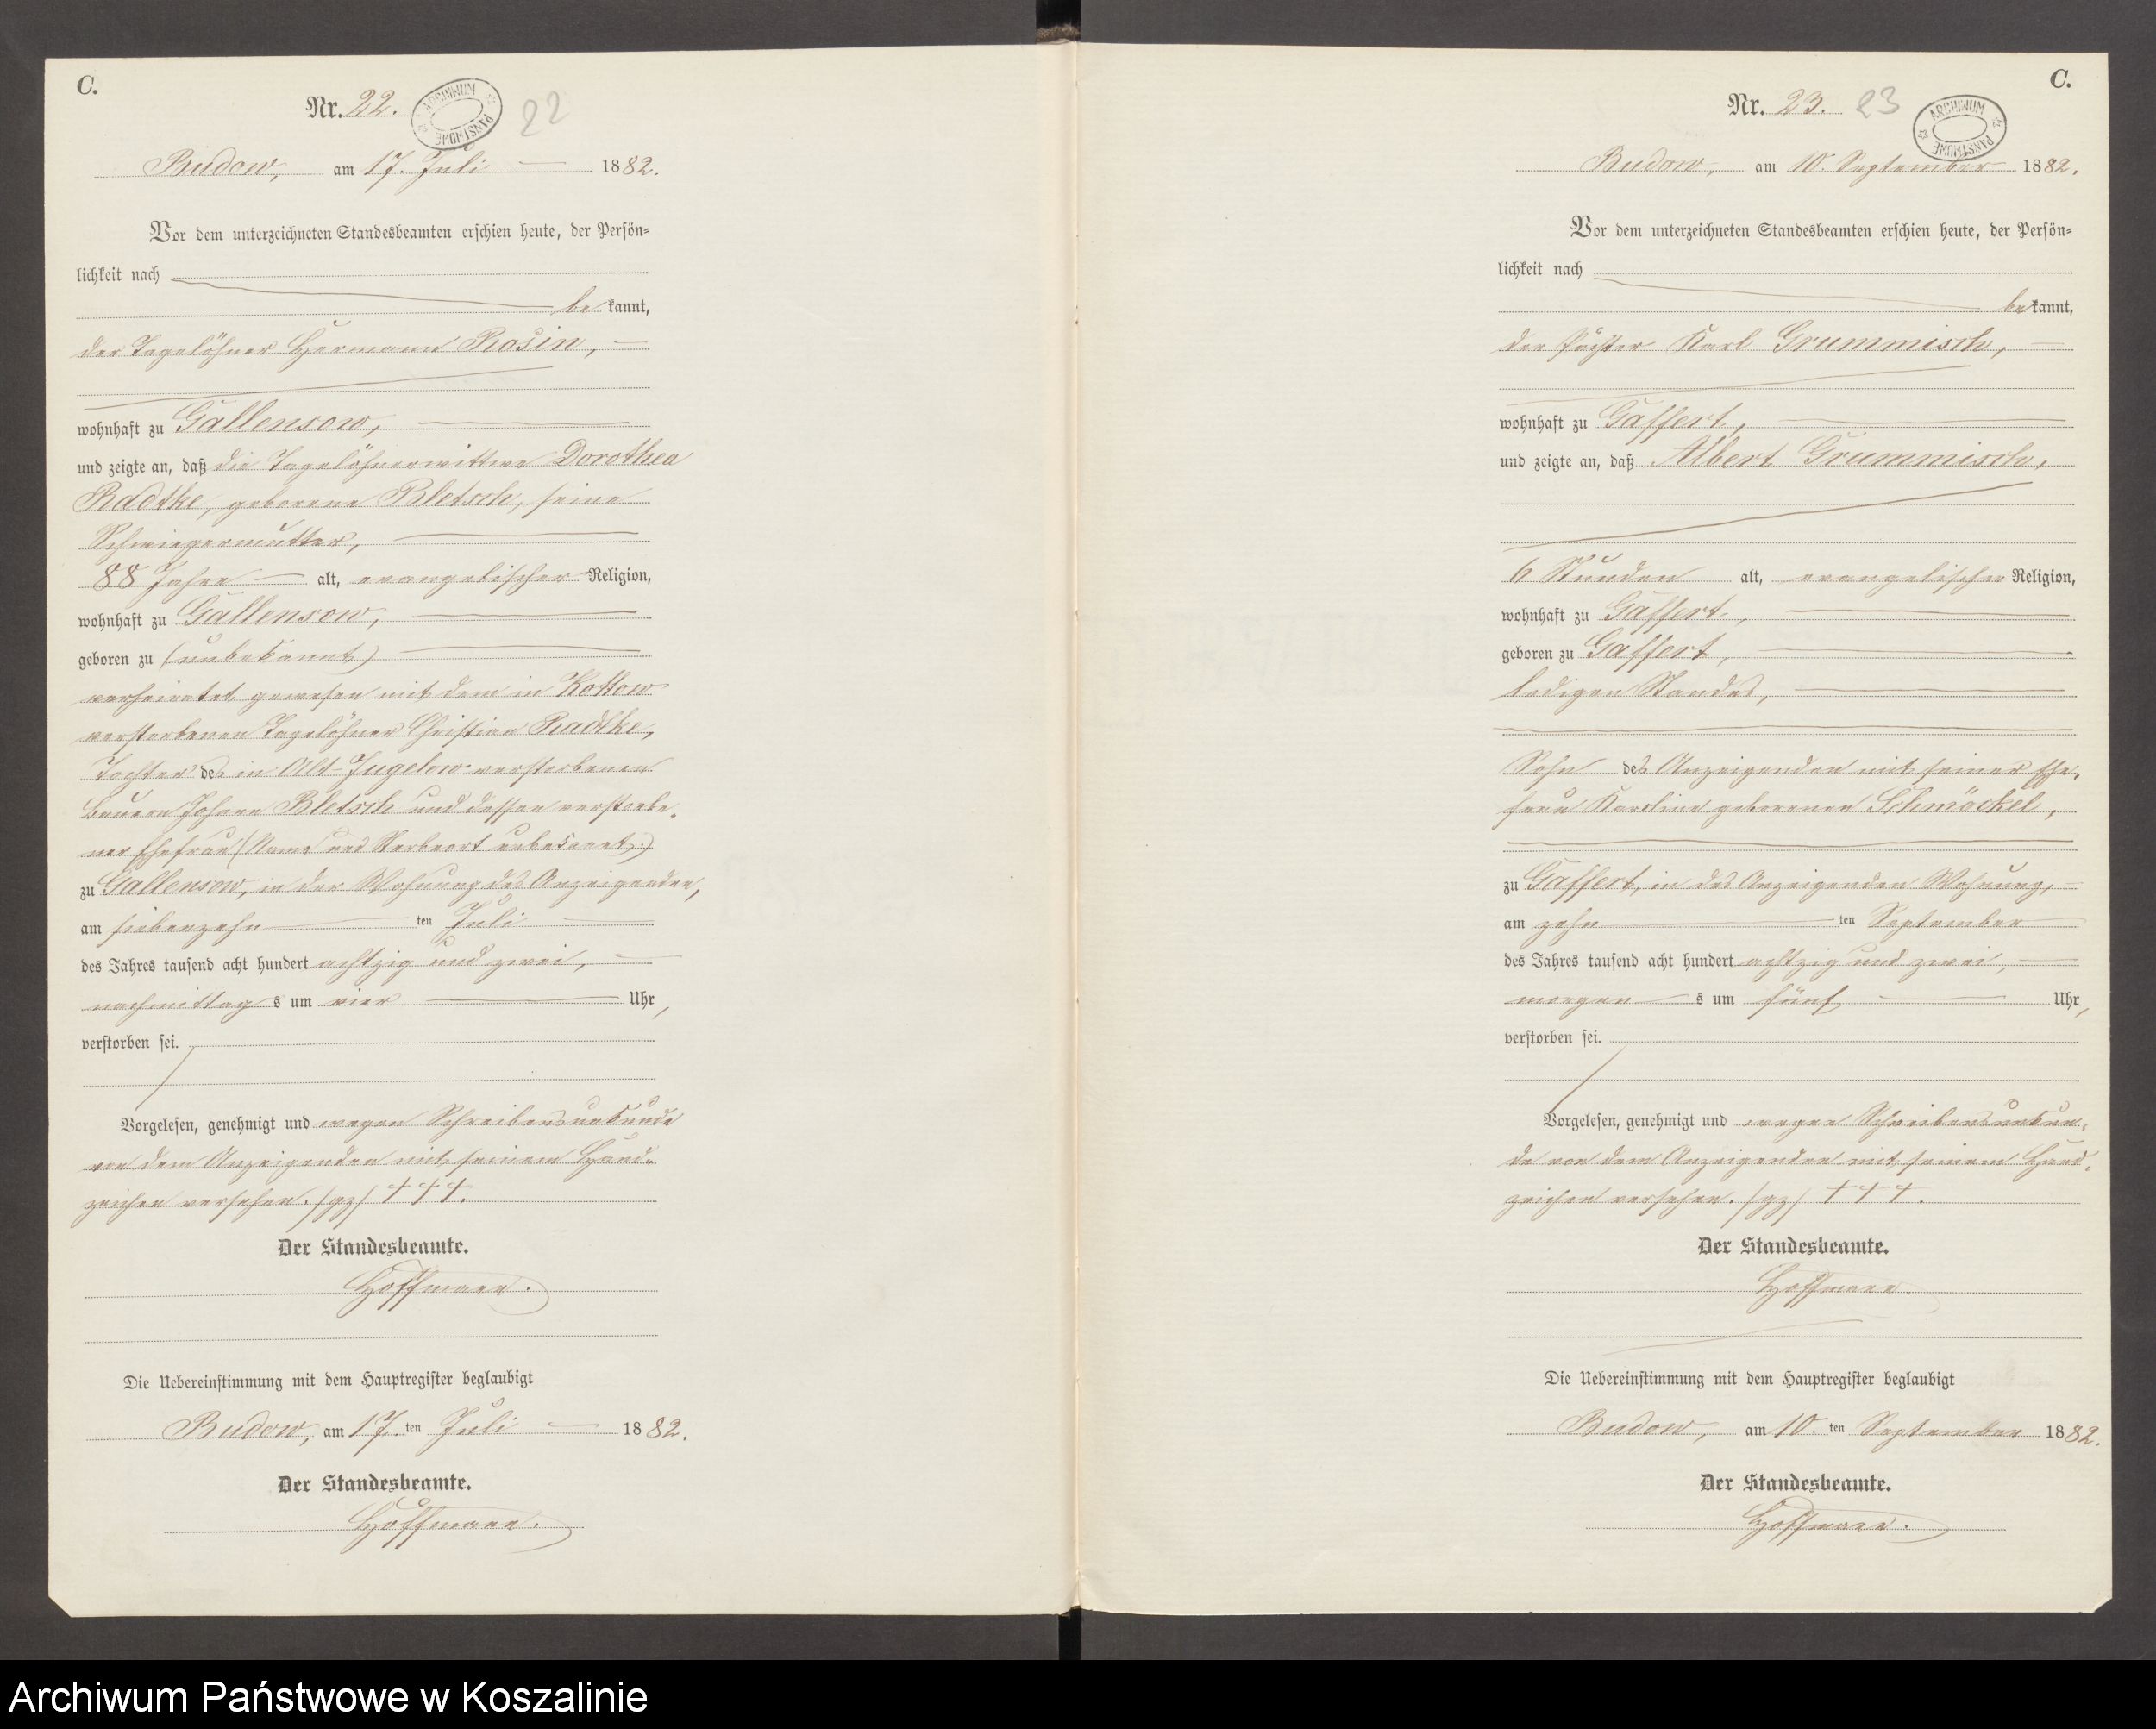 C.
Nr. 22.
ARCHIWUM PAŃSTWOWE
22
Budow, am 17. Juli 1882.
Vor dem unterzeichneten Standesbeamten erschien heute, der Persön=
lichkeit nach
be kannt,
der Tagelöhner Hermann Rosin,
wohnhaft zu Gallensow,
und zeigte an, daß die Tagelöhnerwittwe Dorothea
Radtke, geborene Bletsch, seine
Schwiegermutter,
88 Jahre alt, evangelischer Religion,
wohnhaft zu Gallensow,
geboren zu (unbekannt)
verheiratet gewesen mit dem in Kottow
verstorbenen Tagelöhner Christian Radtke,
Tochter des in Alt-Jugelow verstorbenen
Bauern Johann Bletsch und dessen verstorbe-
ner Ehefrau (Name und Sterbeort unbekannt.)
zu Gallensow, in der Wohnung des Anzeigenden,
am siebenzehn ten Juli
des Jahres tausend acht hundert achtzig und zwei,
nachmittag s um vier Uhr,
verstorben sei.
Vorgelesen, genehmigt und wegen Schreibensunkunde
von dem Anzeigenden mit seinem Hand-
zeichen versehen. (gz) + + +.
Der Standesbeamte.
Hoffmann.
Die Uebereinstimmung mit dem Hauptregister beglaubigt
Budow, am 17. ten Juli 1882.
Der Standesbeamte.
Hoffmann.
C.
Nr. 23. 23
ARCHIWUM PAŃSTWOWE
Budow, am 10. September 1882.
Vor dem unterzeichneten Standesbeamten erschien heute, der Persön=
lichkeit nach
be kannt,
der Pächter Karl Grummisch,
wohnhaft zu Gaffert,
und zeigte an, daß Albert Grummisch,
6 Stunden alt, evangelischer Religion,
wohnhaft zu Gaffert,
geboren zu Gaffert,
ledigen Standes,
Sohn des Anzeigenden mit seiner Ehe-
frau Karoline geborenen Schmöckel,
zu Gaffert, in des Anzeigenden Wohnung,
am zehn ten September
des Jahres tausend acht hundert achtzig und zwei,
morgen s um fünf Uhr,
verstorben sei.
Vorgelesen, genehmigt und wegen Schreibensunkun-
de von dem Anzeigenden mit seinem Hand-
zeichen versehen. (gz) + + +.
Der Standesbeamte.
Hoffmann.
Die Uebereinstimmung mit dem Hauptregister beglaubigt
Budow, am 10. ten September 1882.
Der Standesbeamte.
Hoffmann.
Archiwum Państwowe w Koszalinie